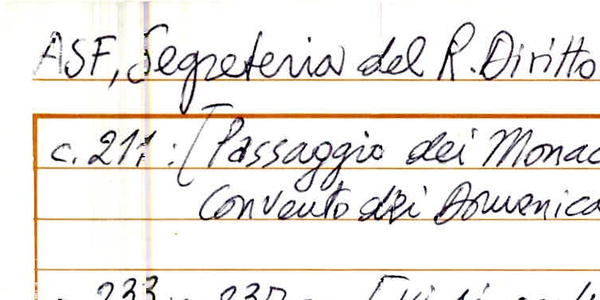 ASF, Segreteria del R. Diritto
c. 211: [Passaggio dei Monac
Convento dei Domenica
c. 233